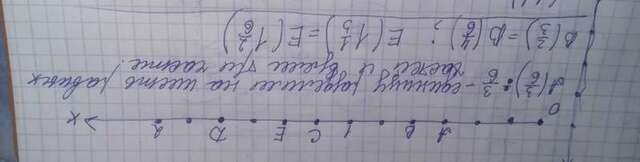 0 A B 1 C E D 2 x
A(3/6) · 3/6 – единицу разделили на шесть равных
частей и взяли три части.
B(2/3) = B(4/6); E(1 1/3) = E(1 2/6)